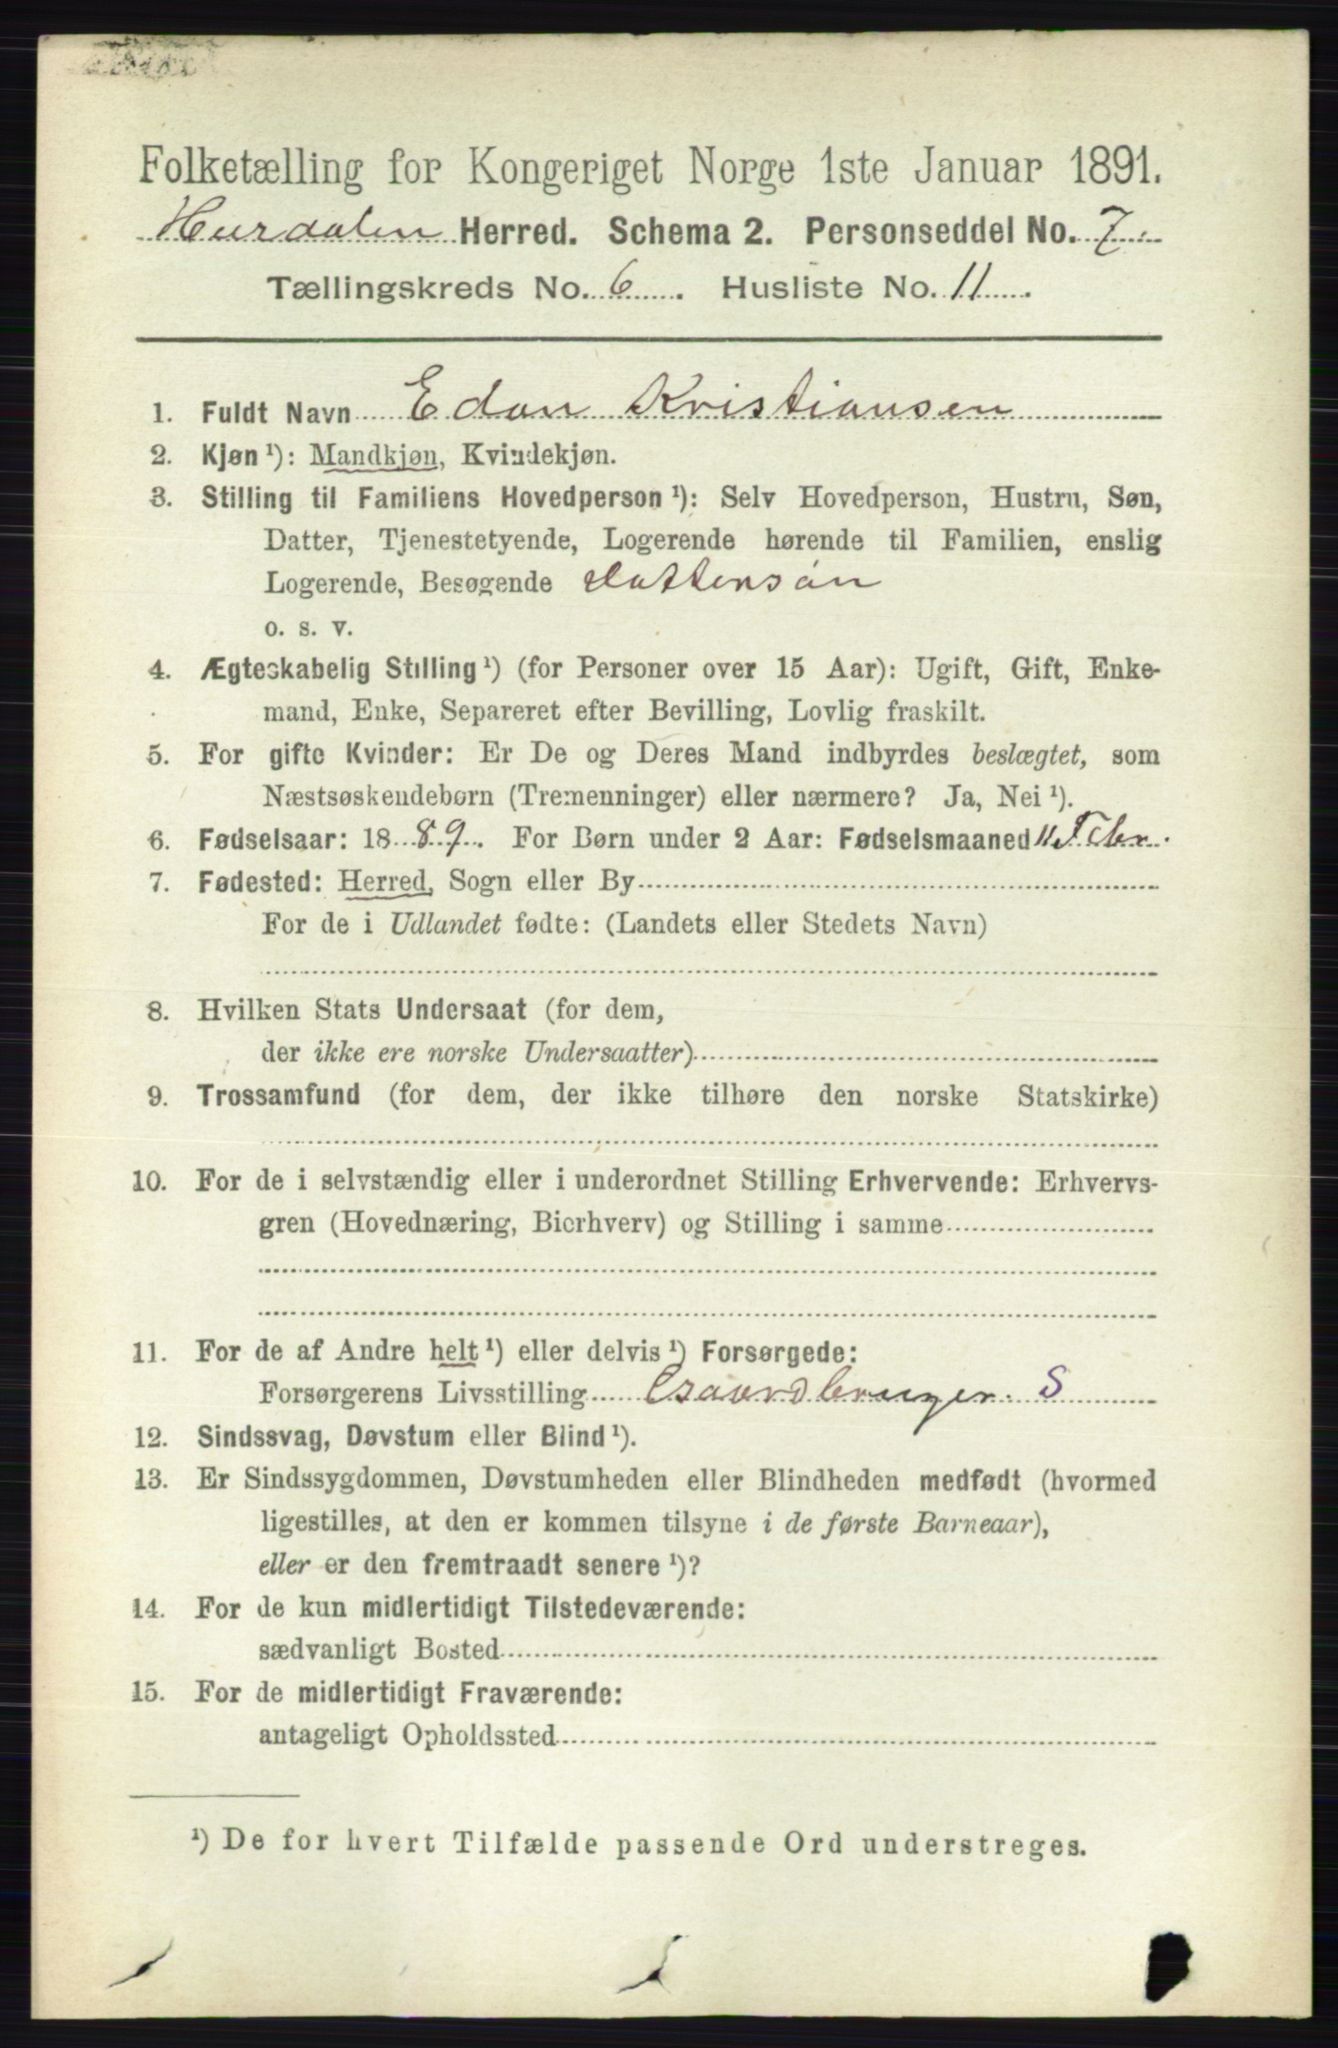 Folketælling for Kongeriget Norge 1ste Januar 1891.
Hurdalen Herred. Schema 2. Personseddel No. 7.
Tællingskreds No. 6. Husliste No. 11.
1. Fuldt Navn Edan Kristiansen
2. Kjøn ¹): Mandkjøn, Kvindekjøn.
3. Stilling til Familiens Hovedperson ¹): Selv Hovedperson, Hustru, Søn,
Datter, Tjenestetyende, Logerende hørende til Familien, enslig
Logerende, Besøgende Dattersøn
o. s. v.
4. Ægteskabelig Stilling ¹) (for Personer over 15 Aar): Ugift, Gift, Enke-
mand, Enke, Separeret efter Bevilling, Lovlig fraskilt.
5. For gifte Kvinder: Er De og Deres Mand indbyrdes beslægtet, som
Næstsøskendebørn (Tremenninger) eller nærmere? Ja, Nei ¹).
6. Fødselsaar: 1889. For Børn under 2 Aar: Fødselsmaaned 11 Febr.
7. Fødested: Herred, Sogn eller By
For de i Udlandet fødte: (Landets eller Stedets Navn)
8. Hvilken Stats Undersaat (for dem,
der ikke ere norske Undersaatter)
9. Trossamfund (for dem, der ikke tilhøre den norske Statskirke)
10. For de i selvstændig eller i underordnet Stilling Erhvervende: Erhvervs-
gren (Hovednæring, Bierhverv) og Stilling i samme
11. For de af Andre helt ¹) eller delvis ¹) Forsørgede:
Forsørgerens Livsstilling Gaardbruger. S
12. Sindssvag, Døvstum eller Blind ¹).
13. Er Sindssygdommen, Døvstumheden eller Blindheden medfødt (hvormed
ligestilles, at den er kommen tilsyne i de første Barneaar),
eller er den fremtraadt senere ¹)?
14. For de kun midlertidigt Tilstedeværende:
sædvanligt Bosted
15. For de midlertidigt Fraværende:
antageligt Opholdssted
¹) De for hvert Tilfælde passende Ord understreges.